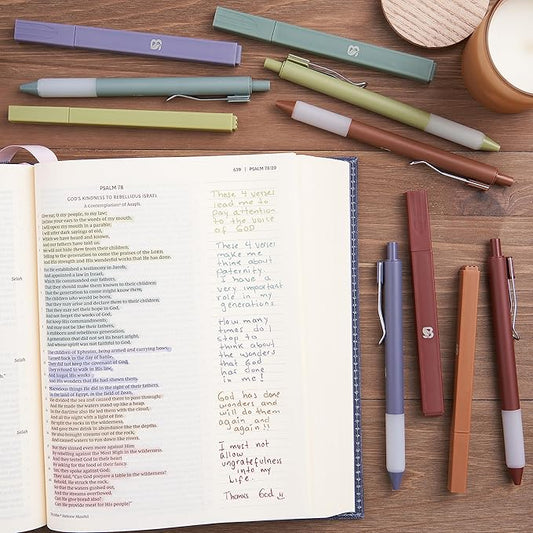 639 | PSALM 78:20
PSALM 78
GOD'S KINDNESS TO REBELLIOUS ISRAEL
A Contemplation of Asaph.
Give ear, O my people, to my law;
Incline your ears to the words of my mouth.
I will open my mouth in a parable;
I will utter dark sayings of old,
Which we have heard and known,
And our fathers have told us.
We will not hide them from their children,
Telling to the generation to come the praises of the LORD,
And His strength and His wonderful works that He has done.
For He established a testimony in Jacob,
And appointed a law in Israel,
Which He commanded our fathers,
That they should make them known to their children;
That the generation to come might know them,
The children who would be born,
That they may arise and declare them to their children,
That they may set their hope in God,
And not forget the works of God,
But keep His commandments;
And may not be like their fathers,
A stubborn and rebellious generation,
A generation that did not set its heart aright,
And whose spirit was not faithful to God.
The children of Ephraim, being armed and carrying bows,
Turned back in the day of battle.
They did not keep the covenant of God;
They refused to walk in His law,
And forgot His works
And His wonders that He had shown them.
Marvelous things He did in the sight of their fathers,
In the land of Egypt, in the field of Zoan.
He divided the sea and caused them to pass through;
And He made the waters stand up like a heap.
In the daytime also He led them with the cloud,
And all the night with a light of fire.
He split the rocks in the wilderness,
And gave them drink in abundance like the depths.
He also brought streams out of the rock,
And caused waters to run down like rivers.
But they sinned even more against Him
By rebelling against the Most High in the wilderness.
And they tested God in their heart
By asking for the food of their fancy.
Yes, they spoke against God:
They said, "Can God prepare a table in the wilderness?
Behold, He struck the rock,
So that the waters gushed out,
And the streams overflowed.
Can He give bread also?
Can He provide meat for His people?"
These 4 verses
lead me to
pay attention
to the voice
of GOD
These 4 verses
make me
think about
paternity.
I have a
very important
role in my
generations.
How many
times do I
stop to
think about
the wonders
that God
has done
in me!
God has done
wonders and
will do them
again and
again!!
I must not
allow
ungratefulness
into my
Life.
Thanks God
Selah
Selah